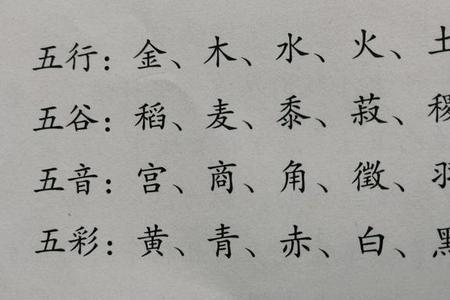 五行：金、木、水、火、土
五谷：稻、麦、黍、菽、稷
五音：宫、商、角、徵、羽
五彩：黄、青、赤、白、黑